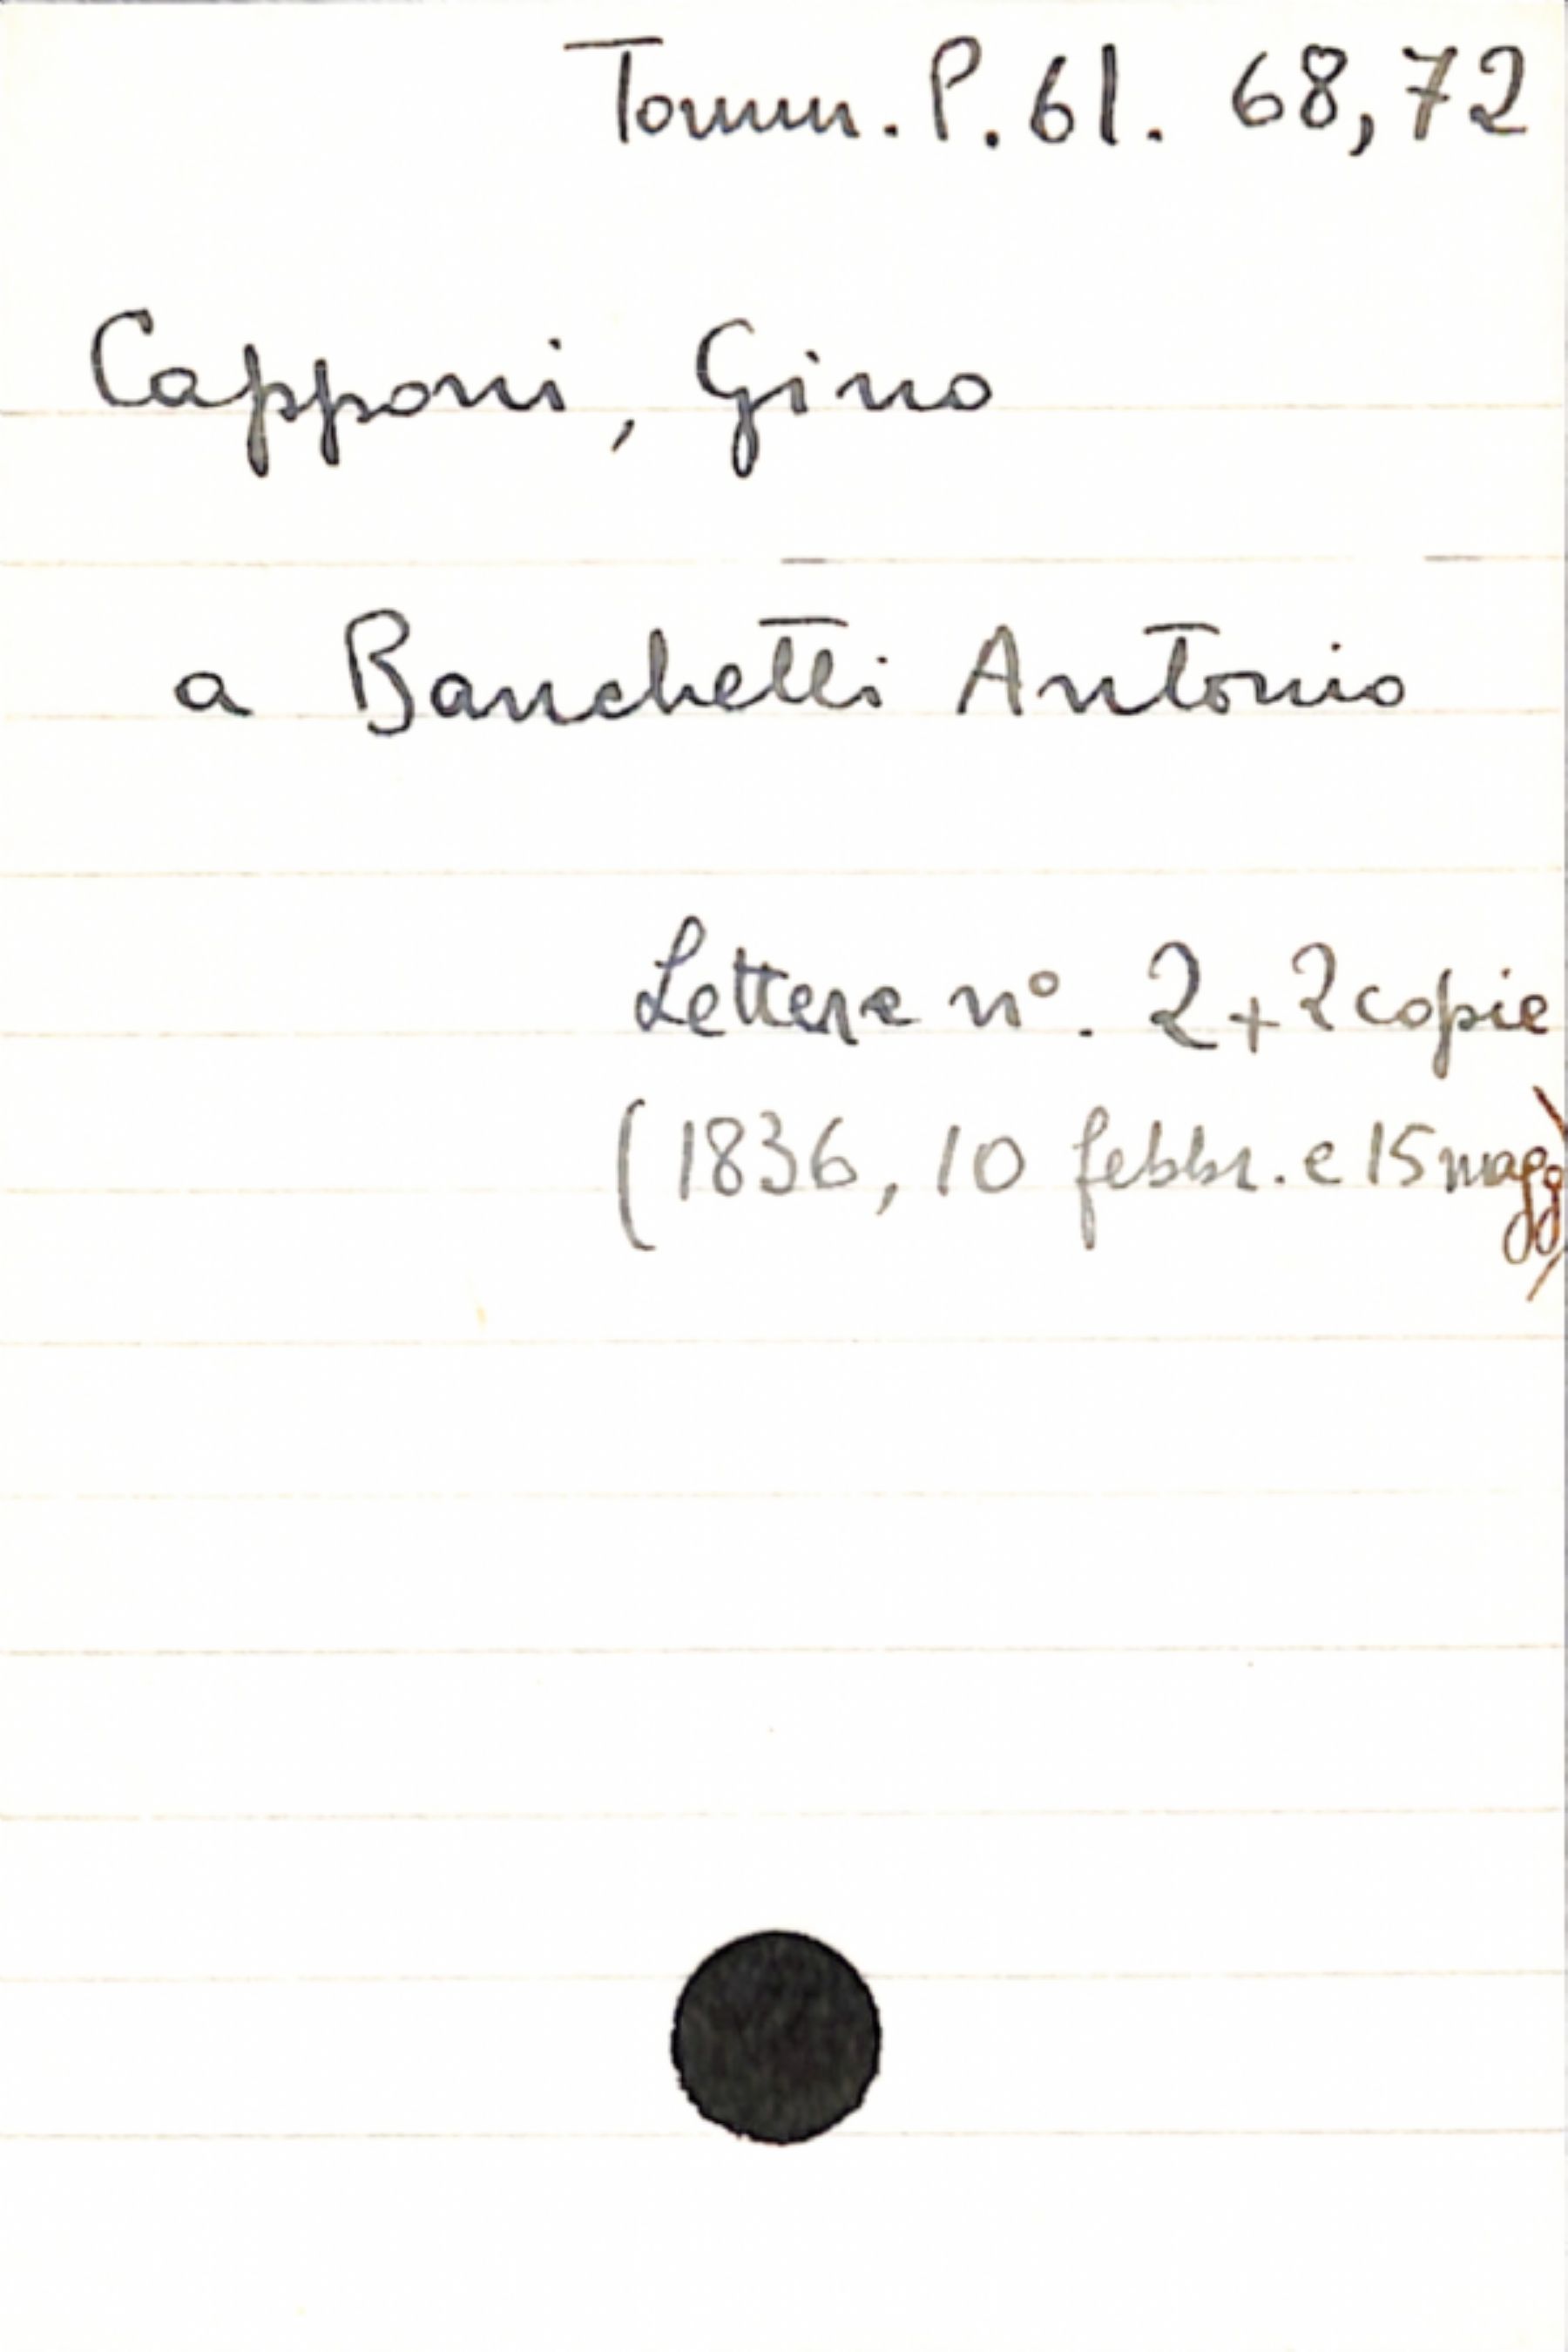 Tomm. P. 61. 68,72
Capponi, Gino
a Banchetti Antonio
Lettere nº. 2+2 copie
(1836, 10 febbr. e 15 magg)